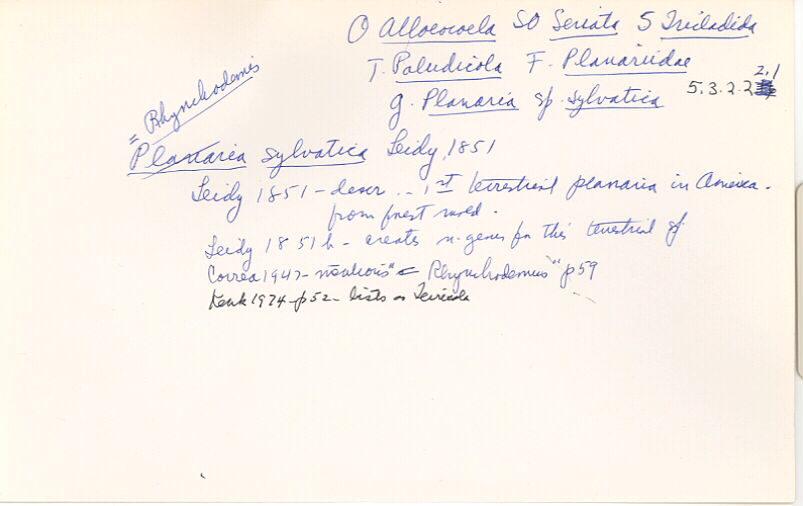 O Alloeocoela SO Seriata S Tricladida
T. Paludicola F. Planariidae
2.1
5.3.2.2
g. Planaria sp. sylvatica
= Rhynchodemis
Planaria sylvatica Leidy, 1851
Leidy 1851 - descr .. 1st terrestrial planaria in America.
from forest
Leidy 1851 b - creates n. genus for this terrestrial
Correa 1947 - mentions "= Rhynchodemus" p59
Kenk 1974 - p52 - lists as Terricola